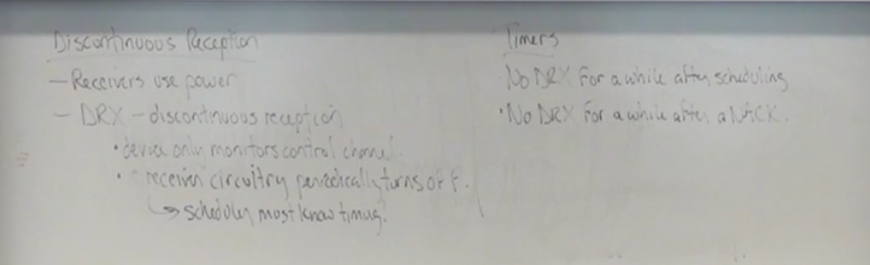 Discontinuous Reception
- Receivers use power
- DRX - discontinuous reception
• device only monitors control channel.
• receiver circuitry periodically turns off.
↳ scheduler must know timing.
Timers
No DRX for a while after scheduling
• No DRX for a while after a NACK.